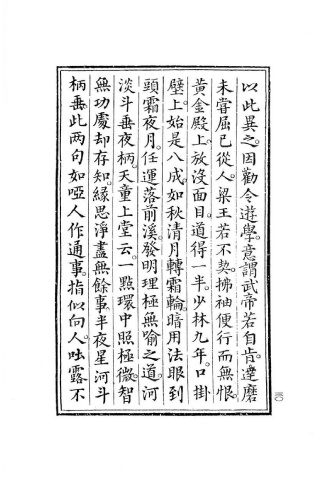 以此異之。因勸令遊學。意謂武帝若自肯。達磨
未嘗屈己從人。梁王若不契。拂袖便行而無恨。
黃金殿上。放沒面目。道得一半。少林九年。口掛
壁上。始是八成。如秋清月轉霜輪。暗用法眼到
頭霜夜月。任運落前溪。發明理極無喻之道。河
淡斗垂夜柄。天童上堂云。一點環中照極微。智
無功處却存知。緣思淨盡無餘事。半夜星河斗
柄垂。此兩句如啞人作通事。指似向人。咄。露不